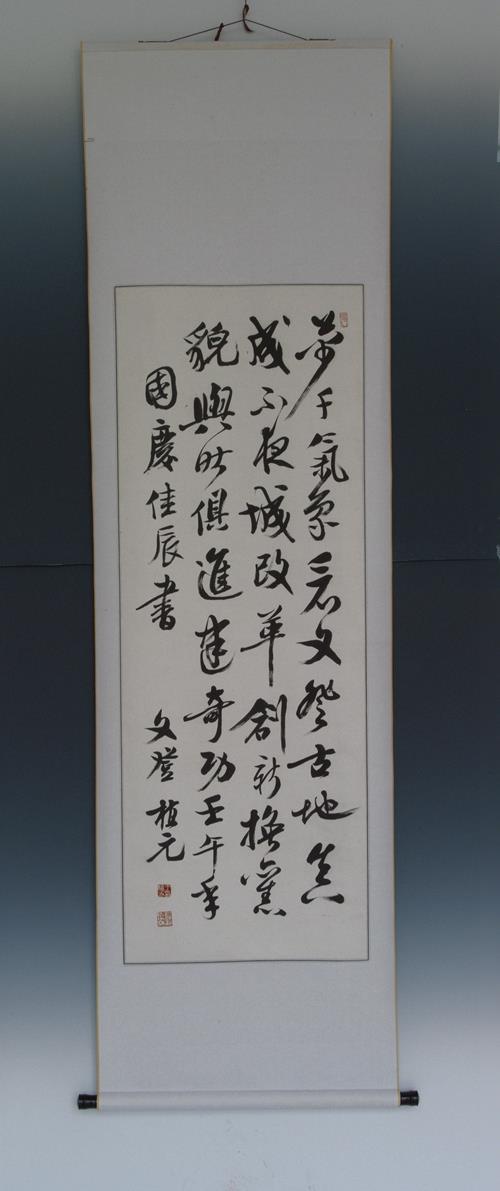 萬千氣象看文登古地真
成不夜城改革創新換舊
貌與時俱進建奇功壬午年
國慶佳辰書 文登植元